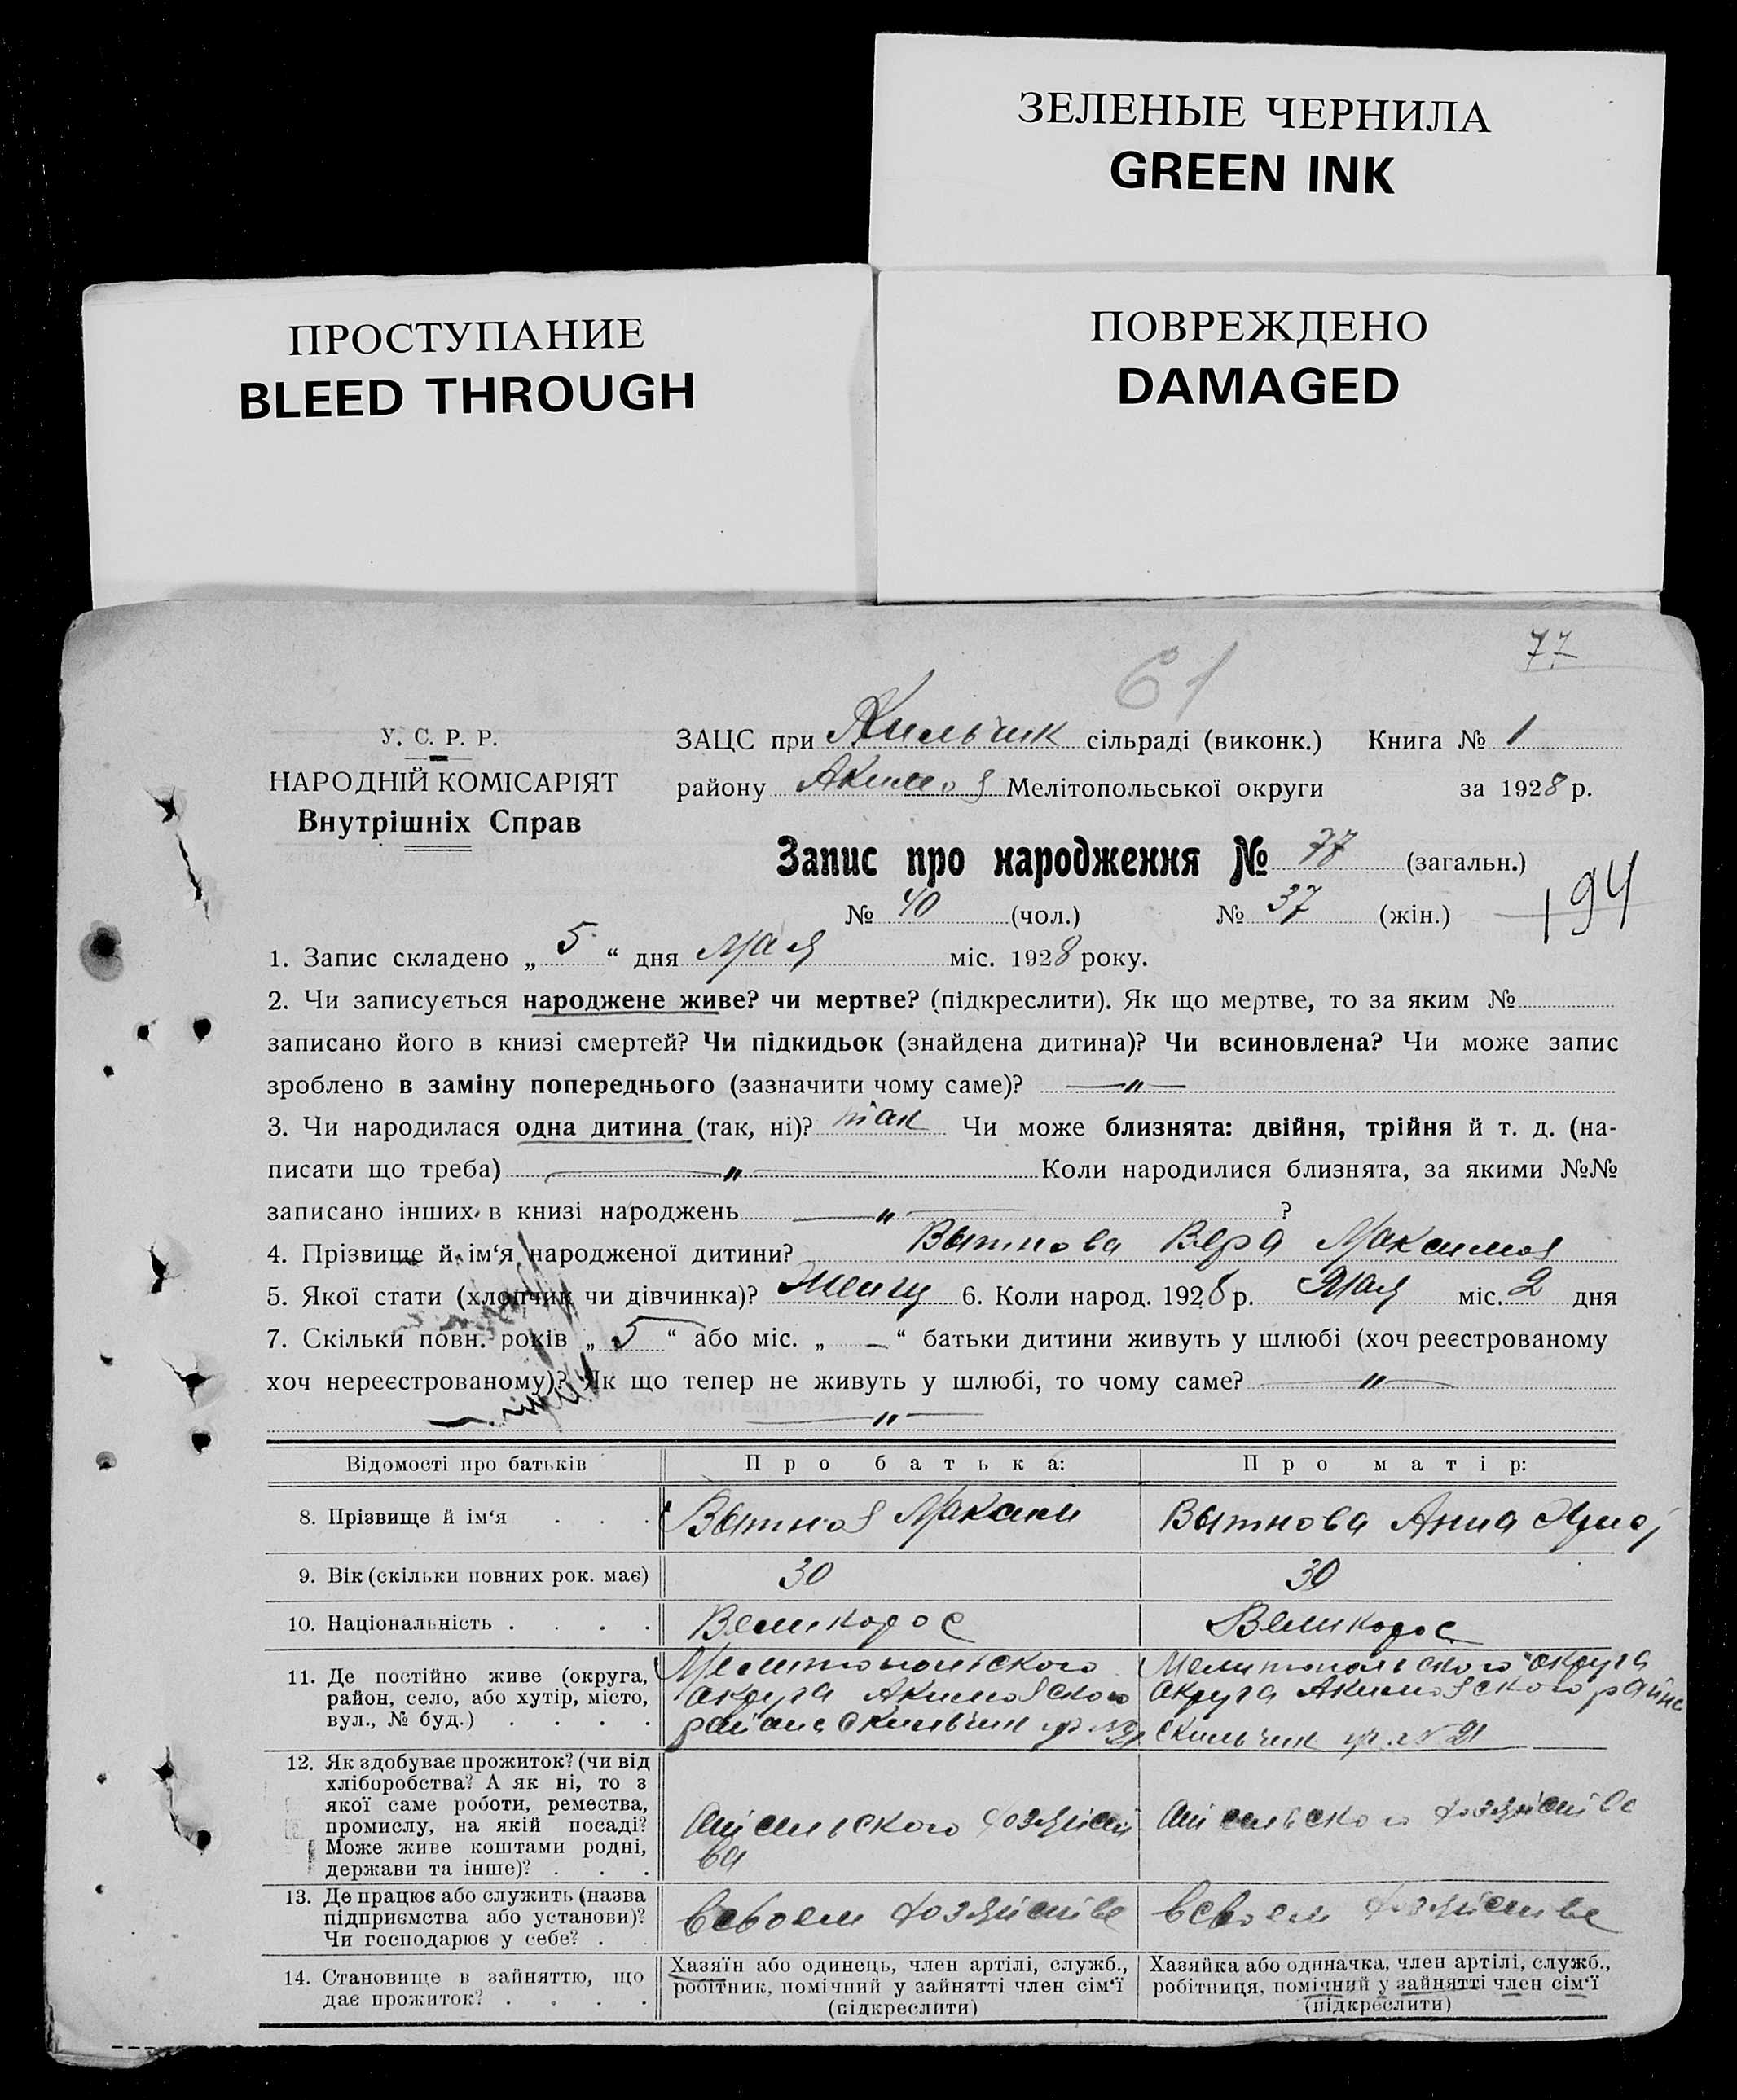 ЗЕЛЕНЫЕ ЧЕРНИЛА
GREEN INK
ПРОСТУПАНИЕ
BLEED THROUGH
ПОВРЕЖДЕНО
DAMAGED
77
61
У. С. Р. Р.
НАРОДНІЙ КОМІСАРІЯТ
Внутрішніх Справ
ЗАЦС при Кильчик сільраді (виконк.) Книга № 1
району Акимов Мелітопольської округи за 1928 р.
Запис про народження № 77 (загальн.)
№ 40 (чол.) № 37 (жін.)
194
1. Запис складено „ 5 “ дня Мая міс. 1928 року.
2. Чи записується народжене живе? чи мертве? (підкреслити). Як що мертве, то за яким №
записано його в книзі смертей? Чи підкидьок (знайдена дитина)? Чи всиновлена? Чи може запис
зроблено в заміну попереднього (зазначити чому саме)? —„—
3. Чи народилася одна дитина (так, ні)? так Чи може близнята: двійня, трійня й т. д. (на-
писати що треба) —„— Коли народилися близнята, за якими №№
записано інших в книзі народжень —„— ?
4. Прізвище й ім‘я народженої дитини? Вытнова Вера Максимов
5. Якої стати (хлопчик чи дівчинка)? Женщ 6. Коли народ. 1928 р. Мая міс. 2 дня
7. Скільки повн. років „ 5 “ або міс. „ — “ батьки дитини живуть у шлюбі (хоч реєстрованому
хоч нереєстрованому)? Як що тепер не живуть у шлюбі, то чому саме? —„—
—„—
Відомості про батьків Про батька: Про матір:
8. Прізвище й ім‘я . . . Вытнов Максим Вытнова Анна
9. Вік (скільки повних рок. має) 30 30
10. Національність . . . . Великорос Великорос
11. Де постійно живе (округа,
район, село, або хутір, місто,
вул., № буд.) . . . .
Мелитопольского
округа Акимовского
района с Кильчик
Мелитопольского округа
округа Акимовского района
с Кильчик № 21
12. Як здобуває прожиток? (чи від
хліборобства? А як ні, то з
якої саме роботи, ремества,
промислу, на якій посаді?
Може живе коштами родні,
держави та інше)? . . .
От сельского хозяйст
ва
От сельского хозяйства
13. Де працює або служить (назва
підприємства або установи)?
Чи господарює у себе? . .
в своем хозяйстве
в своем хозяйстве
14. Становище в зайняттю, що
дає прожиток? . . . .
Хазяїн або одинець, член артілі, служб.,
робітник, помічний у зайнятті член сім‘ї
(підкреслити)
Хазяйка або одиначка, член артілі, служб.,
робітниця, помічний у зайнятті член сім‘ї
(підкреслити)